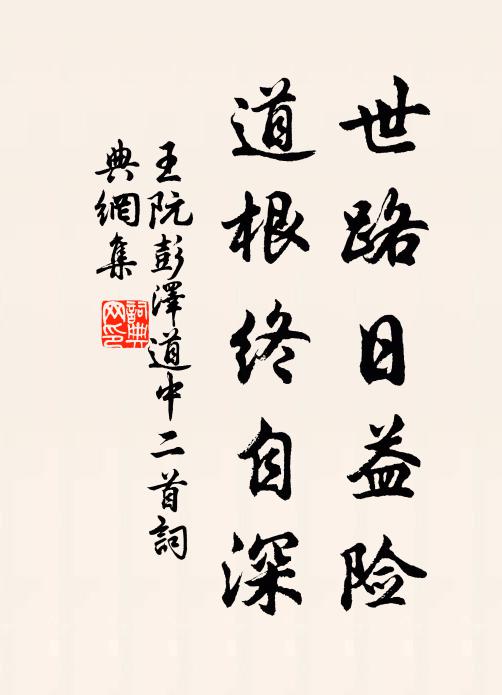 世路日益险
道根终自深
王阮彭澤道中二首詞
典網集
詞典
网印